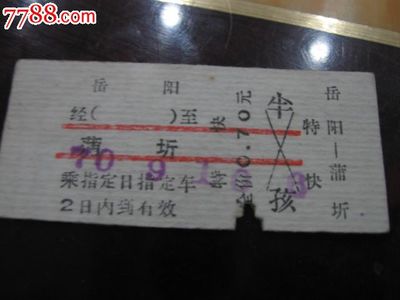 7788.com
岳 阳
经( )至
蒲 圻
70 9 1
乘指定日指定车
2日内到有效
特 快
全价0.70元
半 孩
特 快
岳阳—蒲圻